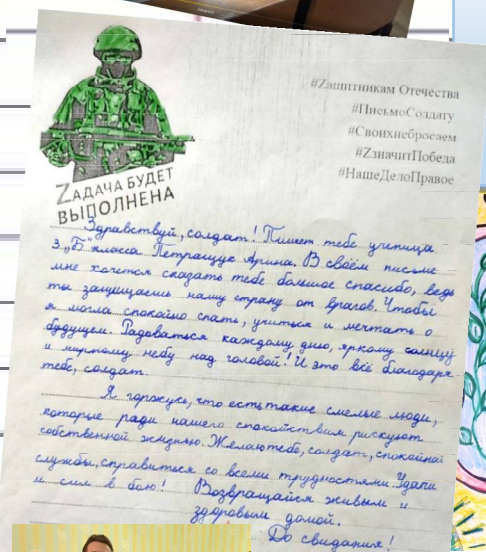 #Zащитникам Отечества
#ПисьмоСолдату
#Своихнебросаем
#ZзначитПобеда
#НашеДелоПравое
ZАДАЧА БУДЕТ
ВЫПОЛНЕНА
Здравствуй, солдат! Пишет тебе ученица
3 „Б" класса Петращук Арина. В своём письме
мне хочется сказать тебе большое спасибо, ведь
ты защищаешь нашу страну от врагов. Чтобы
я могла спокойно спать, учиться и мечтать о
будущем. Радоваться каждому дню, яркому солнцу
и мирному небу над головой! И это всё благодаря
тебе, солдат.
Я горжусь, что есть такие смелые люди,
которые ради нашего спокойствия рискуют
собственной жизнью. Желаю тебе, солдат, спокойной
службы, справиться со всеми трудностями. Удачи
и сил в бою! Возвращайся живым и
здоровым домой.
До свидания!